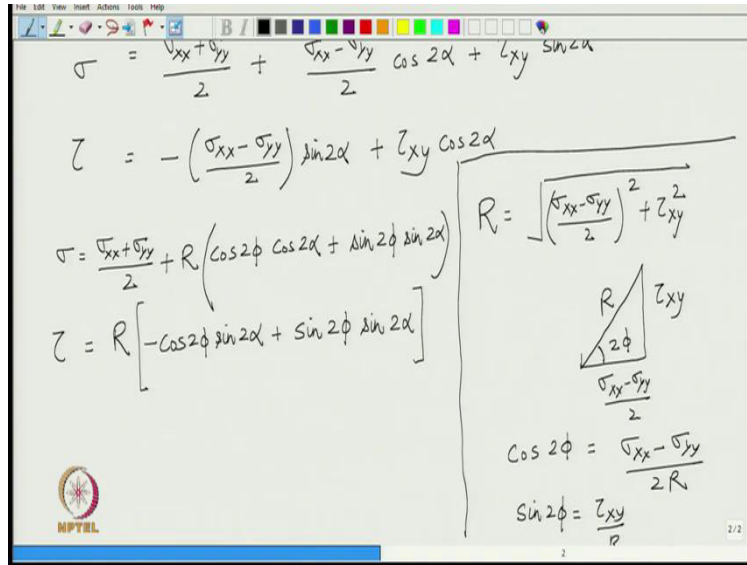 File Edit View Insert Actions Tools Help
B I
σ = σxx + σyy / 2 + σxx - σyy / 2 cos 2α + τxy sin 2α
τ = - (σxx - σyy / 2) sin 2α + τxy cos 2α
σ = σxx + σyy / 2 + R (cos 2φ cos 2α + sin 2φ sin 2α)
τ = R [-cos 2φ sin 2α + sin 2φ sin 2α]
R = √((σxx - σyy / 2)² + τxy²)
R τxy
2φ
σxx - σyy / 2
cos 2φ = σxx - σyy / 2R
sin 2φ = τxy / R
NPTEL
2/2
2